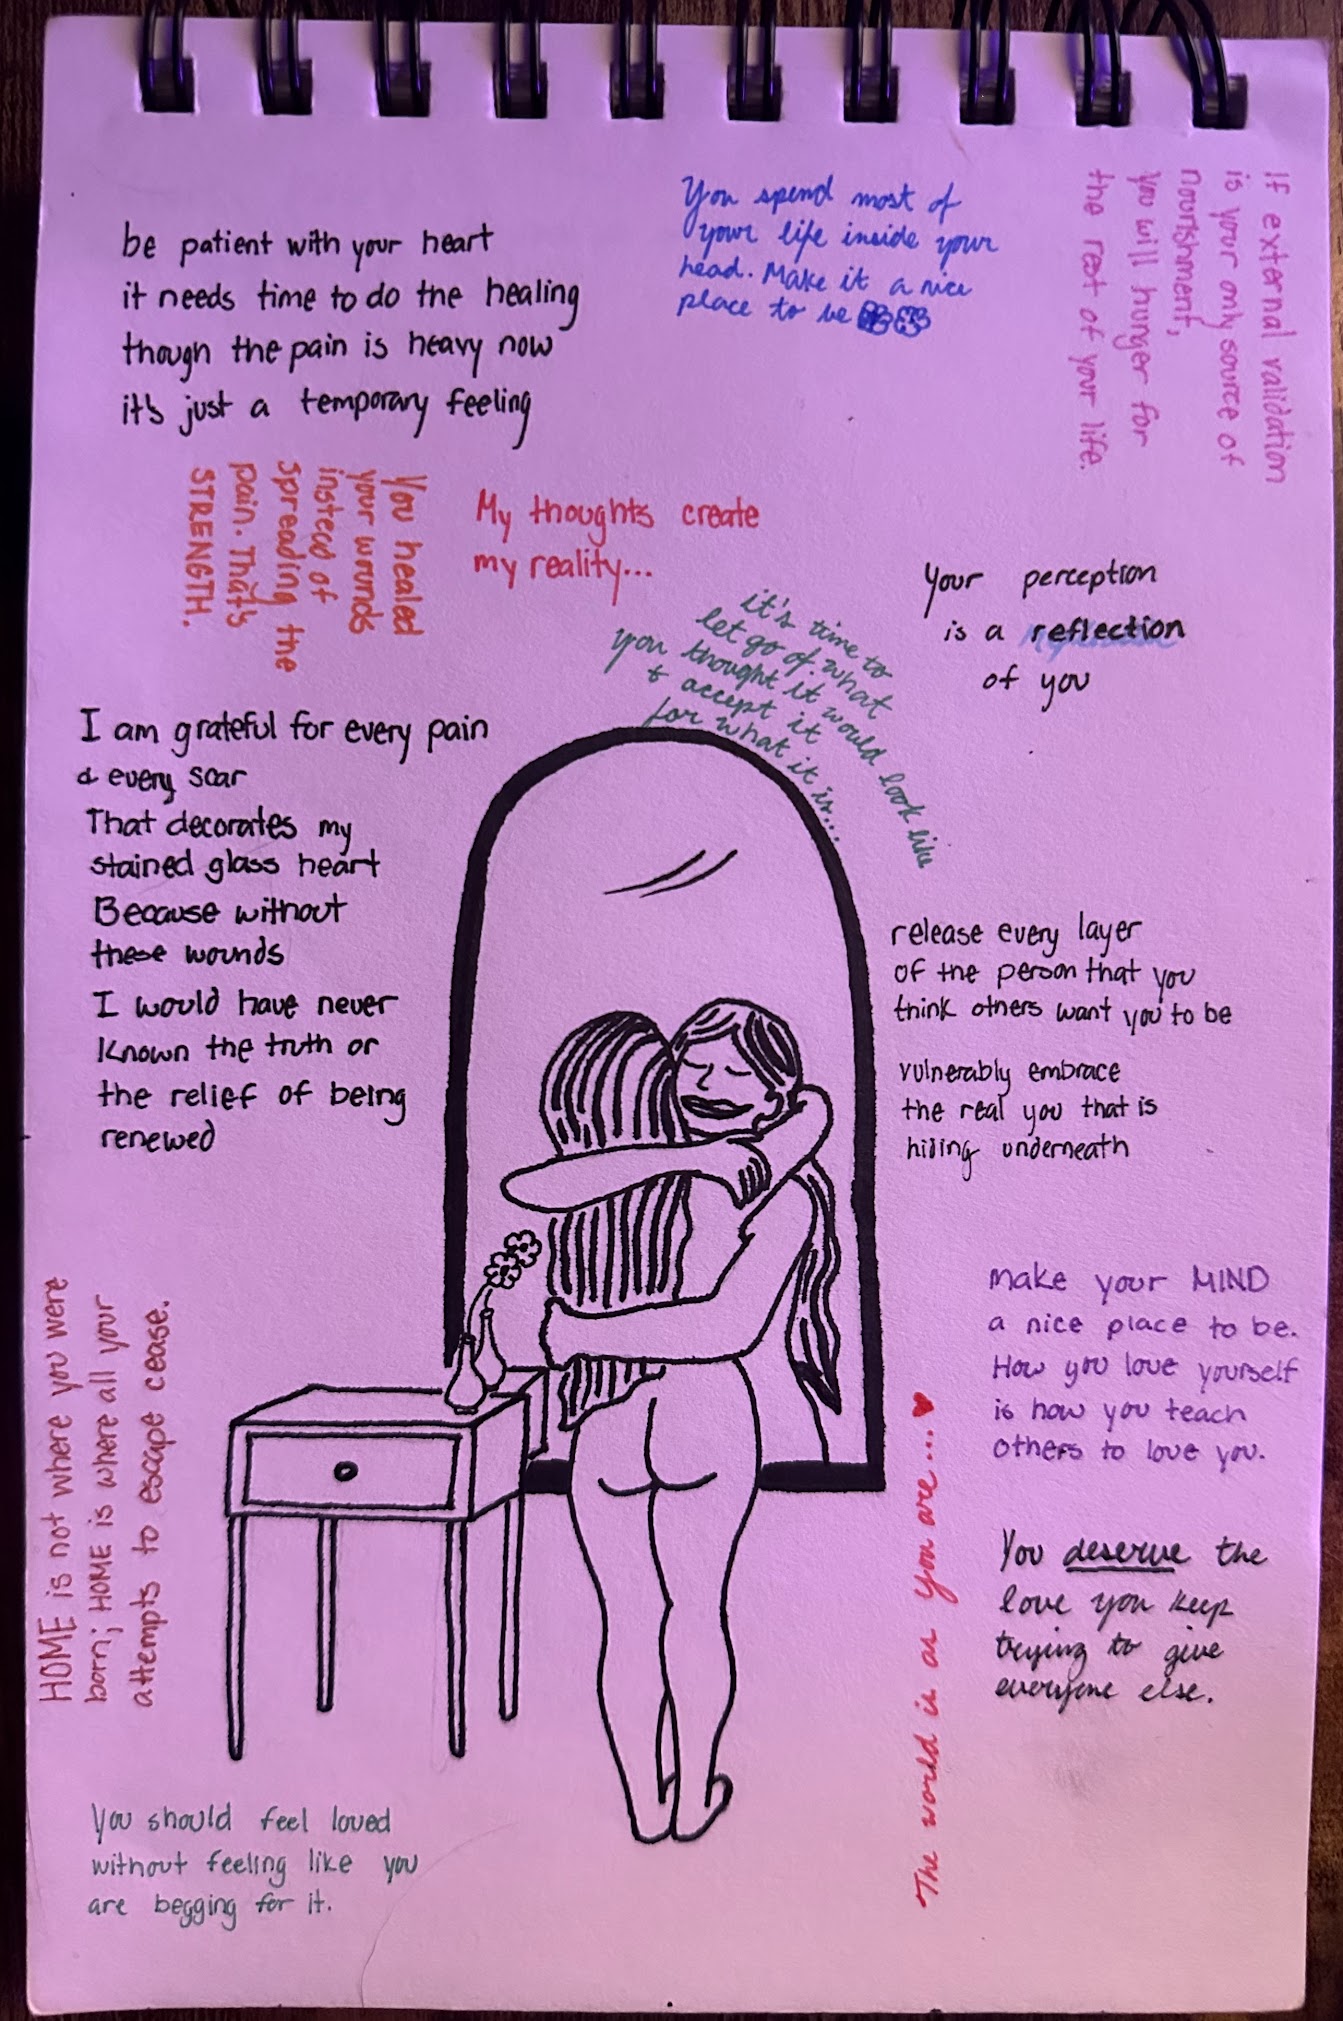 be patient with your heart
it needs time to do the healing
though the pain is heavy now
it's just a temporary feeling
You spend most of
your life inside your
head. Make it a nice
place to be
If external validation
is your only source of
nourishment,
you will hunger for
the rest of your life.
You healed
your wounds
instead of
spreading the
pain. That's
STRENGTH.
My thoughts create
my reality...
Your perception
is a reflection
of you
it's time to
let go of what
you thought it would look like
& accept it
for what it is...
I am grateful for every pain
& every scar
That decorates my
stained glass heart
Because without
these wounds
I would have never
known the truth or
the relief of being
renewed
release every layer
of the person that you
think others want you to be
vulnerably embrace
the real you that is
hiding underneath
make your MIND
a nice place to be.
How you love yourself
is how you teach
others to love you.
HOME is not where you were
born; HOME is where all your
attempts to escape cease.
The world is as you are...
You deserve the
love you keep
trying to give
everyone else.
You should feel loved
without feeling like you
are begging for it.